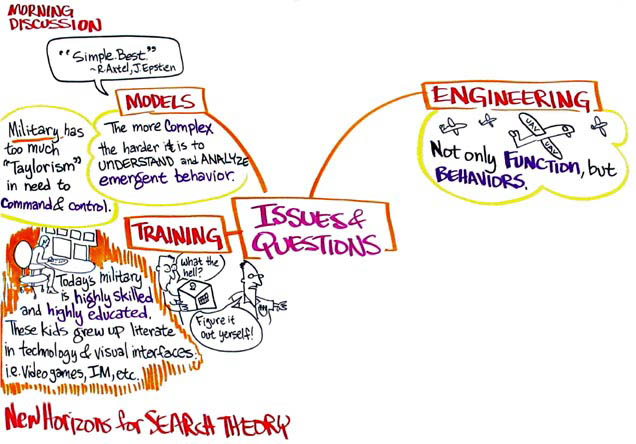 MORNING
DISCUSSION
"Simple.Best."
~R.Axtel, J.Epstien
MODELS
Military has
too much
"Taylorism"
in need to
Command & control.
The more Complex
the harder it is to
UNDERSTAND and ANALYZE
emergent behavior.
ENGINEERING
UAV
UAV
Not only FUNCTION, but
BEHAVIORS.
ISSUES &
QUESTIONS
TRAINING
What the
hell?
Figure it
out yerself!
Today's military
is highly skilled
and highly educated.
These kids grew up literate
in technology & visual interfaces:
i.e. Video games, IM, etc.
New Horizons for SEARCH THEORY